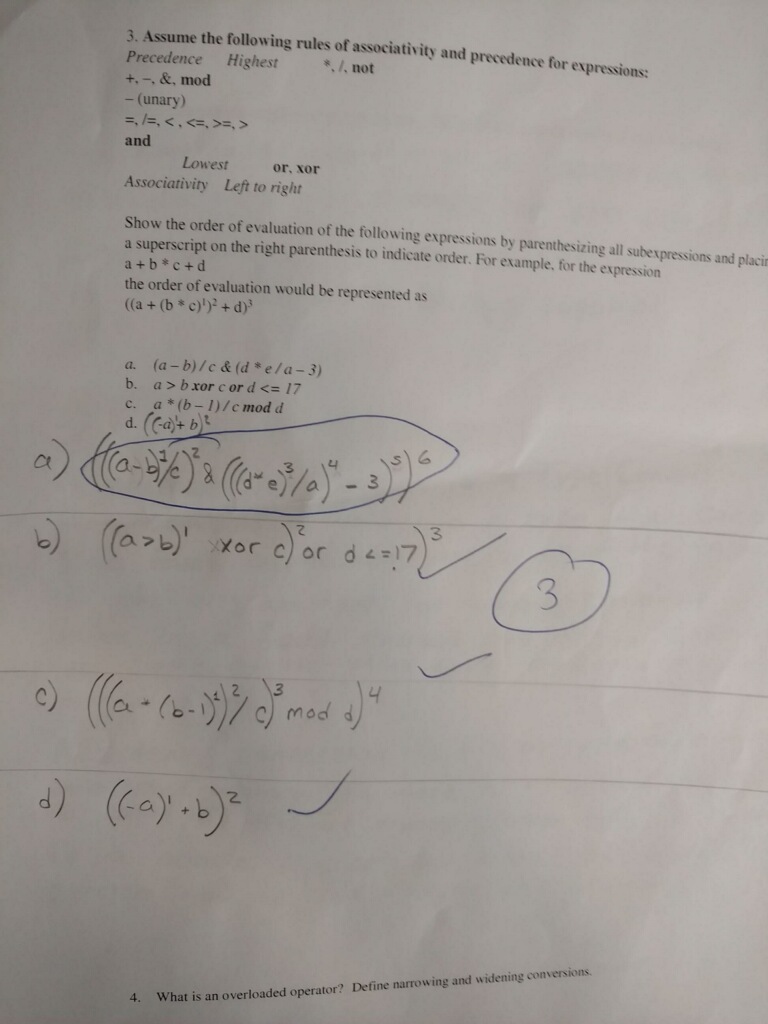 3. Assume the following rules of associativity and precedence for expressions:
Precedence Highest *, /, not
+, –, &, mod
– (unary)
=, /=, < , <=, >=, >
and
Lowest or, xor
Associativity Left to right
Show the order of evaluation of the following expressions by parenthesizing all subexpressions and placin
a superscript on the right parenthesis to indicate order. For example, for the expression
a + b * c + d
the order of evaluation would be represented as
((a + (b * c)¹)² + d)³
a. (a – b) / c & (d * e / a – 3)
b. a > b xor c or d <= 17
c. a * (b – 1) / c mod d
d. ((-a)¹ + b)²
a) (((a-b)¹/c)² & (((d*e)³/a)⁴ - 3)⁵)⁶
b) ((a>b)¹ xor c)² or d <=17)³
3
c) (((a * (b-1)¹)²/c)³ mod d)⁴
d) ((-a)¹ + b)²
4. What is an overloaded operator? Define narrowing and widening conversions.